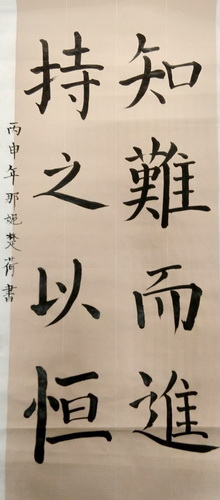 知難而進
持之以恒
丙申年那妮楚荷書